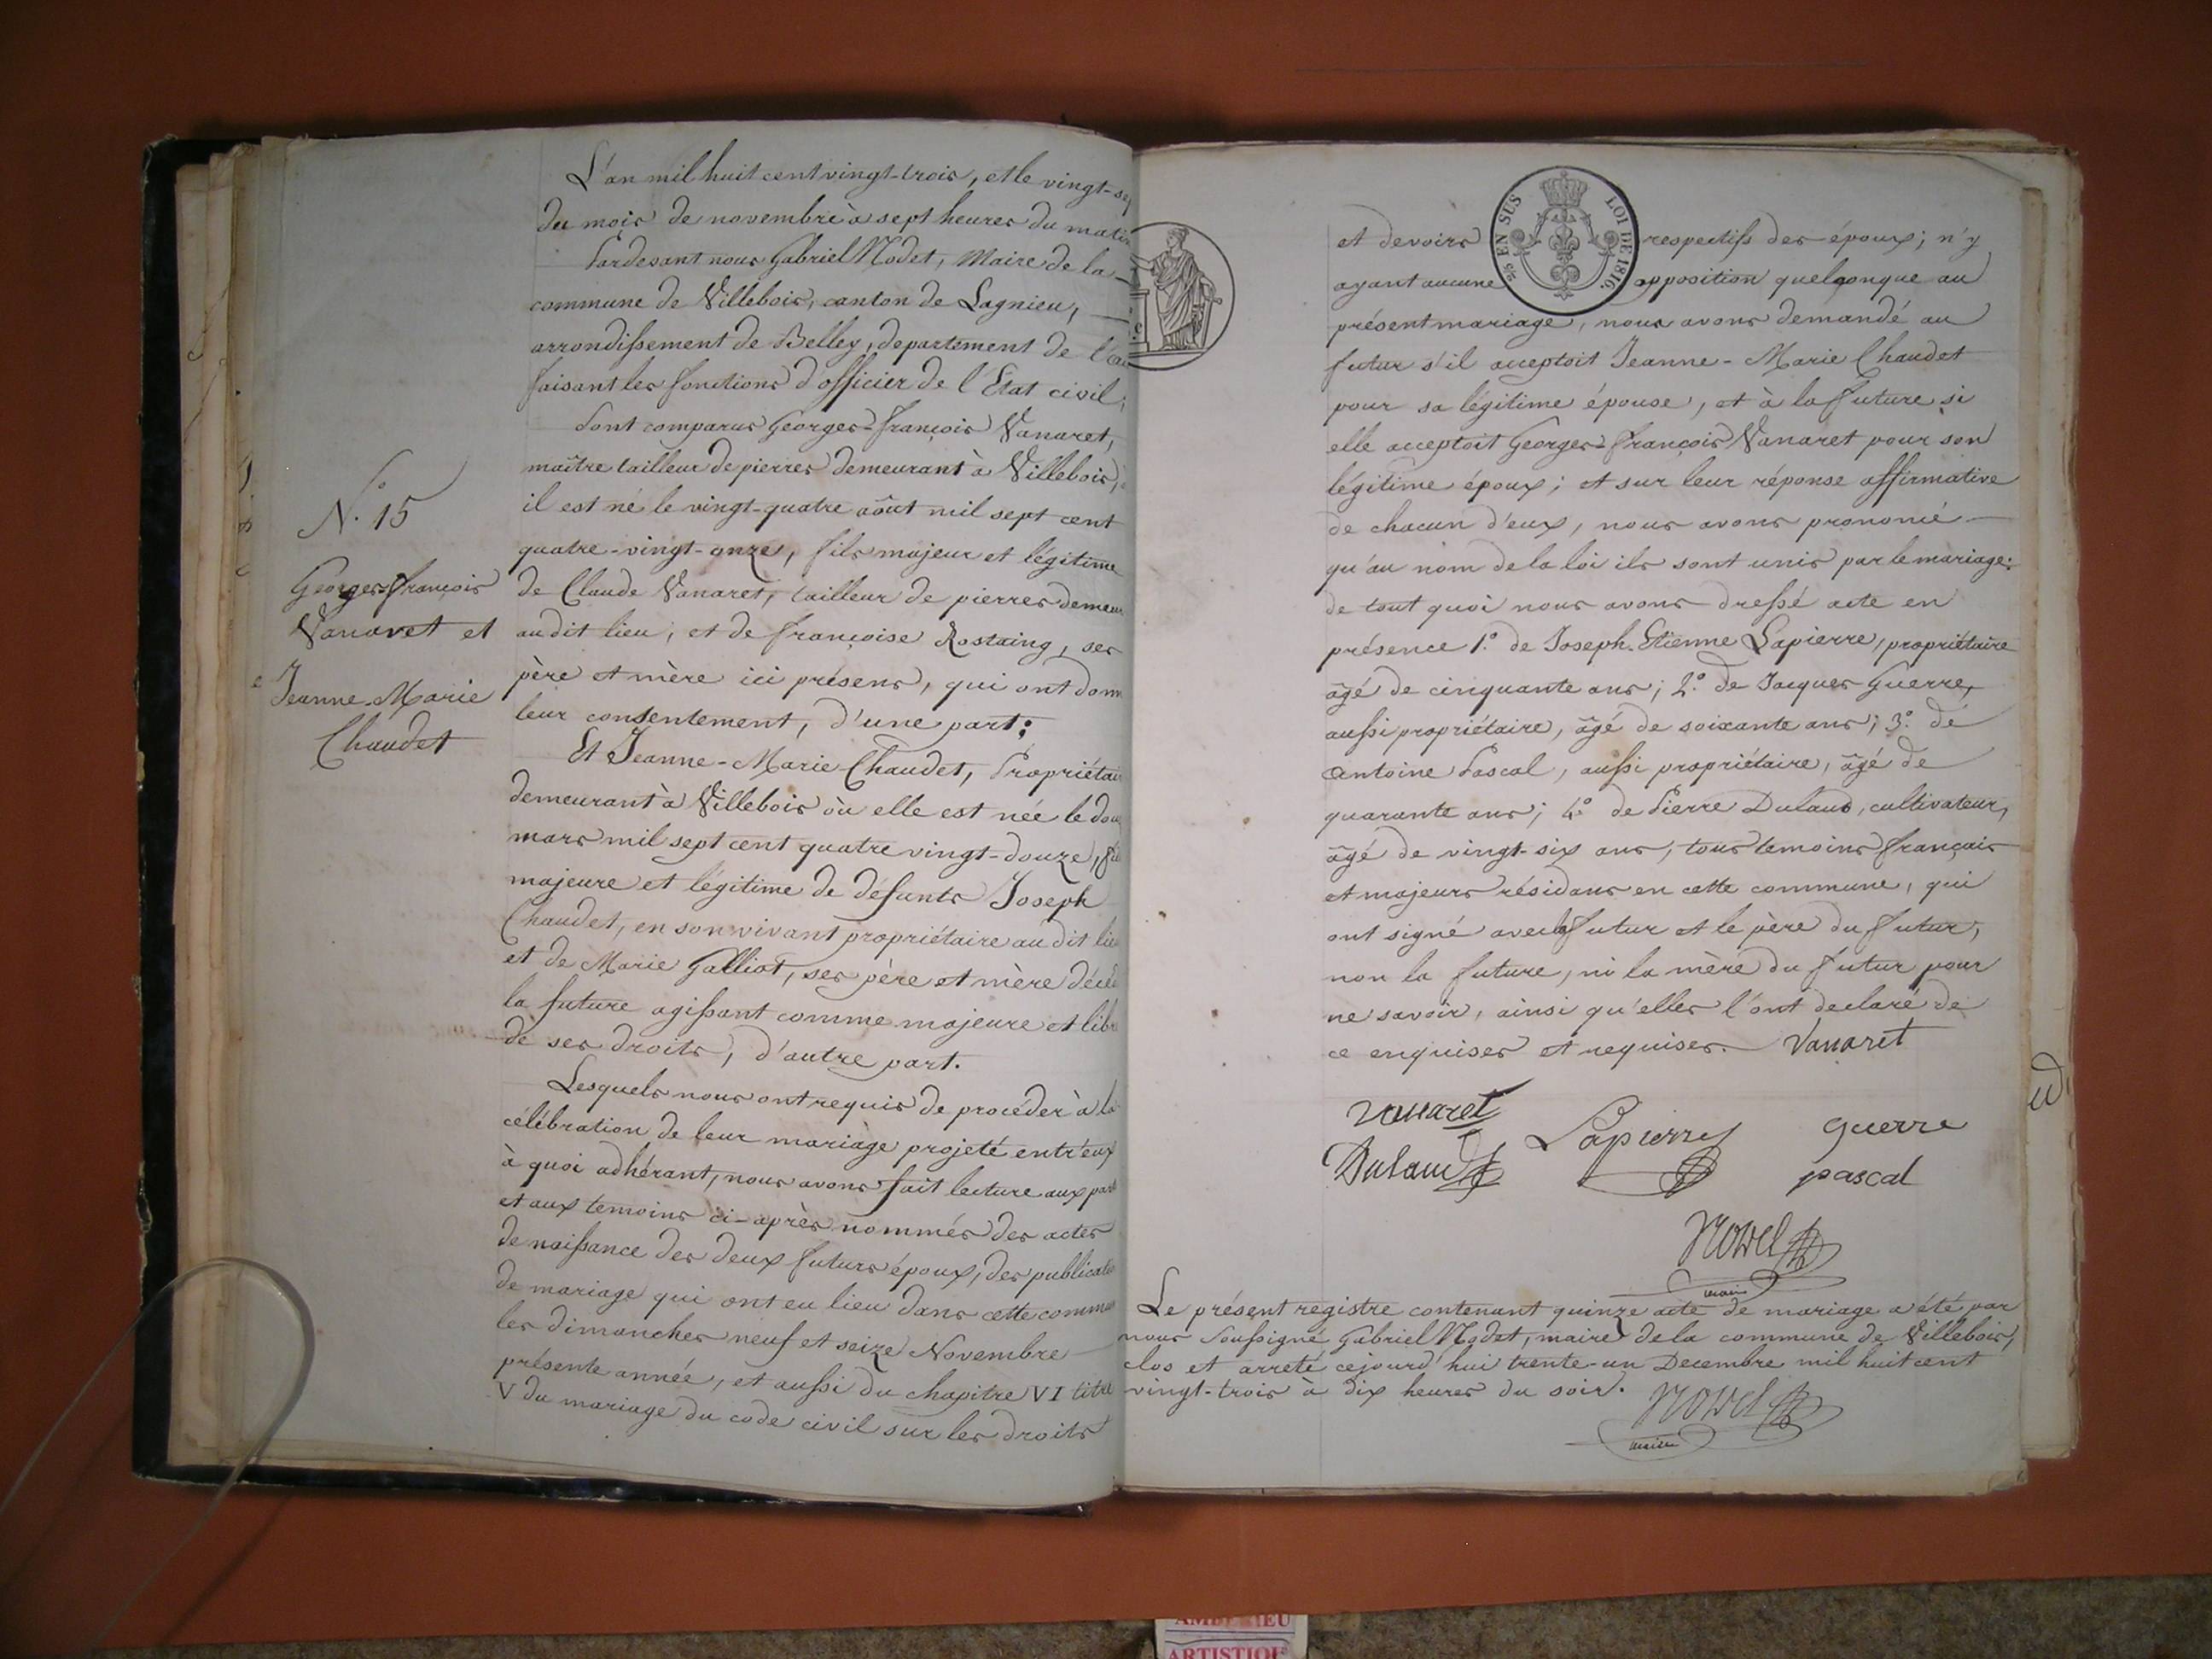 L'an mil huit cent vingt-trois, et le vingt-sep
du mois de novembre à sept heures du matin
Pardevant nous Gabriel Nodet, Maire de la
commune de Villebois, canton de Lagnieu,
arrondissement de Belley, departement de l'
faisant les fonctions d'officier de l'Etat civil,
Sont comparus Georges-françois Vanaret,
maître tailleur de pierres demeurant à Villebois,
il est né le vingt-quatre aôut mil sept cent
quatre-vingt-onze, fils majeur et légitime
de Claude Vanaret, tailleur de pierres demeur
audit lieu, et de françoise Rostaing, ses
père et mère ici présens, qui ont donn
leur consentement, d'une part:
Et Jeanne-Marie Chaudet, Propriétair
demeurant à Villebois où elle est née le dou
mars mil sept cent quatre vingt-douze, fil
majeure et légitime de défunts Joseph
Chaudet, en son vivant propriétaire au dit lieu
et de Marie Galliot, ses père et mère décéd
la future agissant comme majeure et libr
de ses droits, d'autre part.
Lesquels nous ont requis de procéder à la
célébration de leur mariage projeté entr'eux
à quoi adhérant, nous avons fait lecture aux part
et aux temoins ci-après nommés des actes
de naissance des deux futurs époux, des publicatio
de mariage qui ont eu lieu dans cette commu
les dimanches neuf et seize Novembre
présente année, et aussi du chapitre VI titre
V du mariage du code civil sur les droits
N.° 15
Georges-françois
Vanaret et
Jeanne-Marie
Chaudet
2/10 EN SUS
LOI DE 1816.
et devoirs respectifs des époux; n'y
ayant aucune opposition quelqonque au
présent mariage, nous avons demandé au
futur s'il acceptoit Jeanne-Marie Chaudet
pour sa légitime épouse, et à la future si
elle acceptoit Georges-françois Vanaret pour son
légitime époux; et sur leur réponse affirmative
de chacun d'eux, nous avons prononcé
qu'au nom de la loi ils sont unis par le mariage:
de tout quoi nous avons dressé acte en
présence 1.° de Joseph-Etienne Lapierre, propriétaire
âgé de cinquante ans; 2.° de Jacques Guerre,
aussi propriétaire, âgé de soixante ans; 3.° de
Antoine Pascal, aussi propriétaire, âgé de
quarante ans; 4.° de Pierre Dulaud, cultivateur,
âgé de vingt-six ans, tous temoins français
et majeurs résidans en cette commune, qui
ont signé avec le futur et le père du futur,
non la future, ni la mère du futur pour
ne savoir, ainsi qu'elles l'ont declaré de
ce enquises et requises. Vanaret
Vanaret
Lapierre guerre
Dulaud pascal
Nodet
maire
Le présent registre contenant quinze acte de mariage a été par
nous Soussigné Gabriel Nodet, maire de la commune de Villebois,
clos et arreté cejourd'hui trente-un Decembre mil huit cent
vingt-trois à dix heures du soir. Nodet
maire
ARTISTIQUE